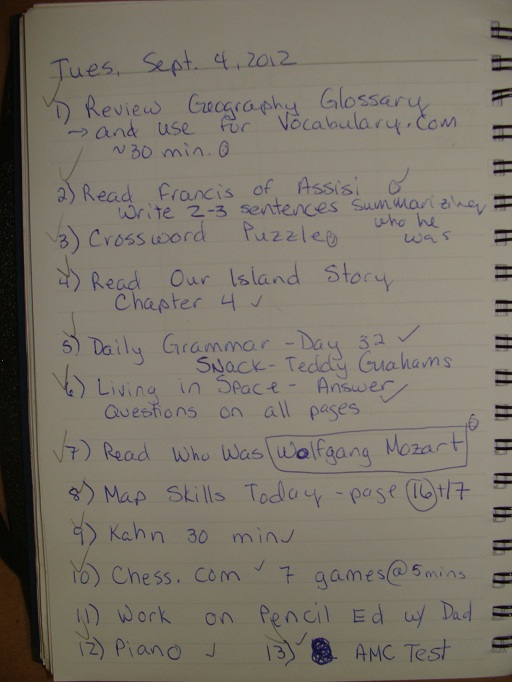 Tues, Sept. 4, 2012
1) Review Geography Glossary
→ and use for Vocabulary.com
~30 min.
2) Read Francis of Assisi
Write 2-3 sentences summarizing
who he
was
3) Crossword Puzzle
4) Read Our Island Story
Chapter 4 ✓
5) Daily Grammar - Day 32 ✓
Snack - Teddy Guahams
6) Living in Space - Answer
Questions on all pages ✓
7) Read Who Was Wolfgang Mozart
8) Map Skills Today - page 16+17
9) Kahn 30 min ✓
10) Chess.com ✓ 7 games @ 5 mins
11) Work on Pencil Ed w/ Dad
12) Piano ✓ 13) ✓ AMC Test